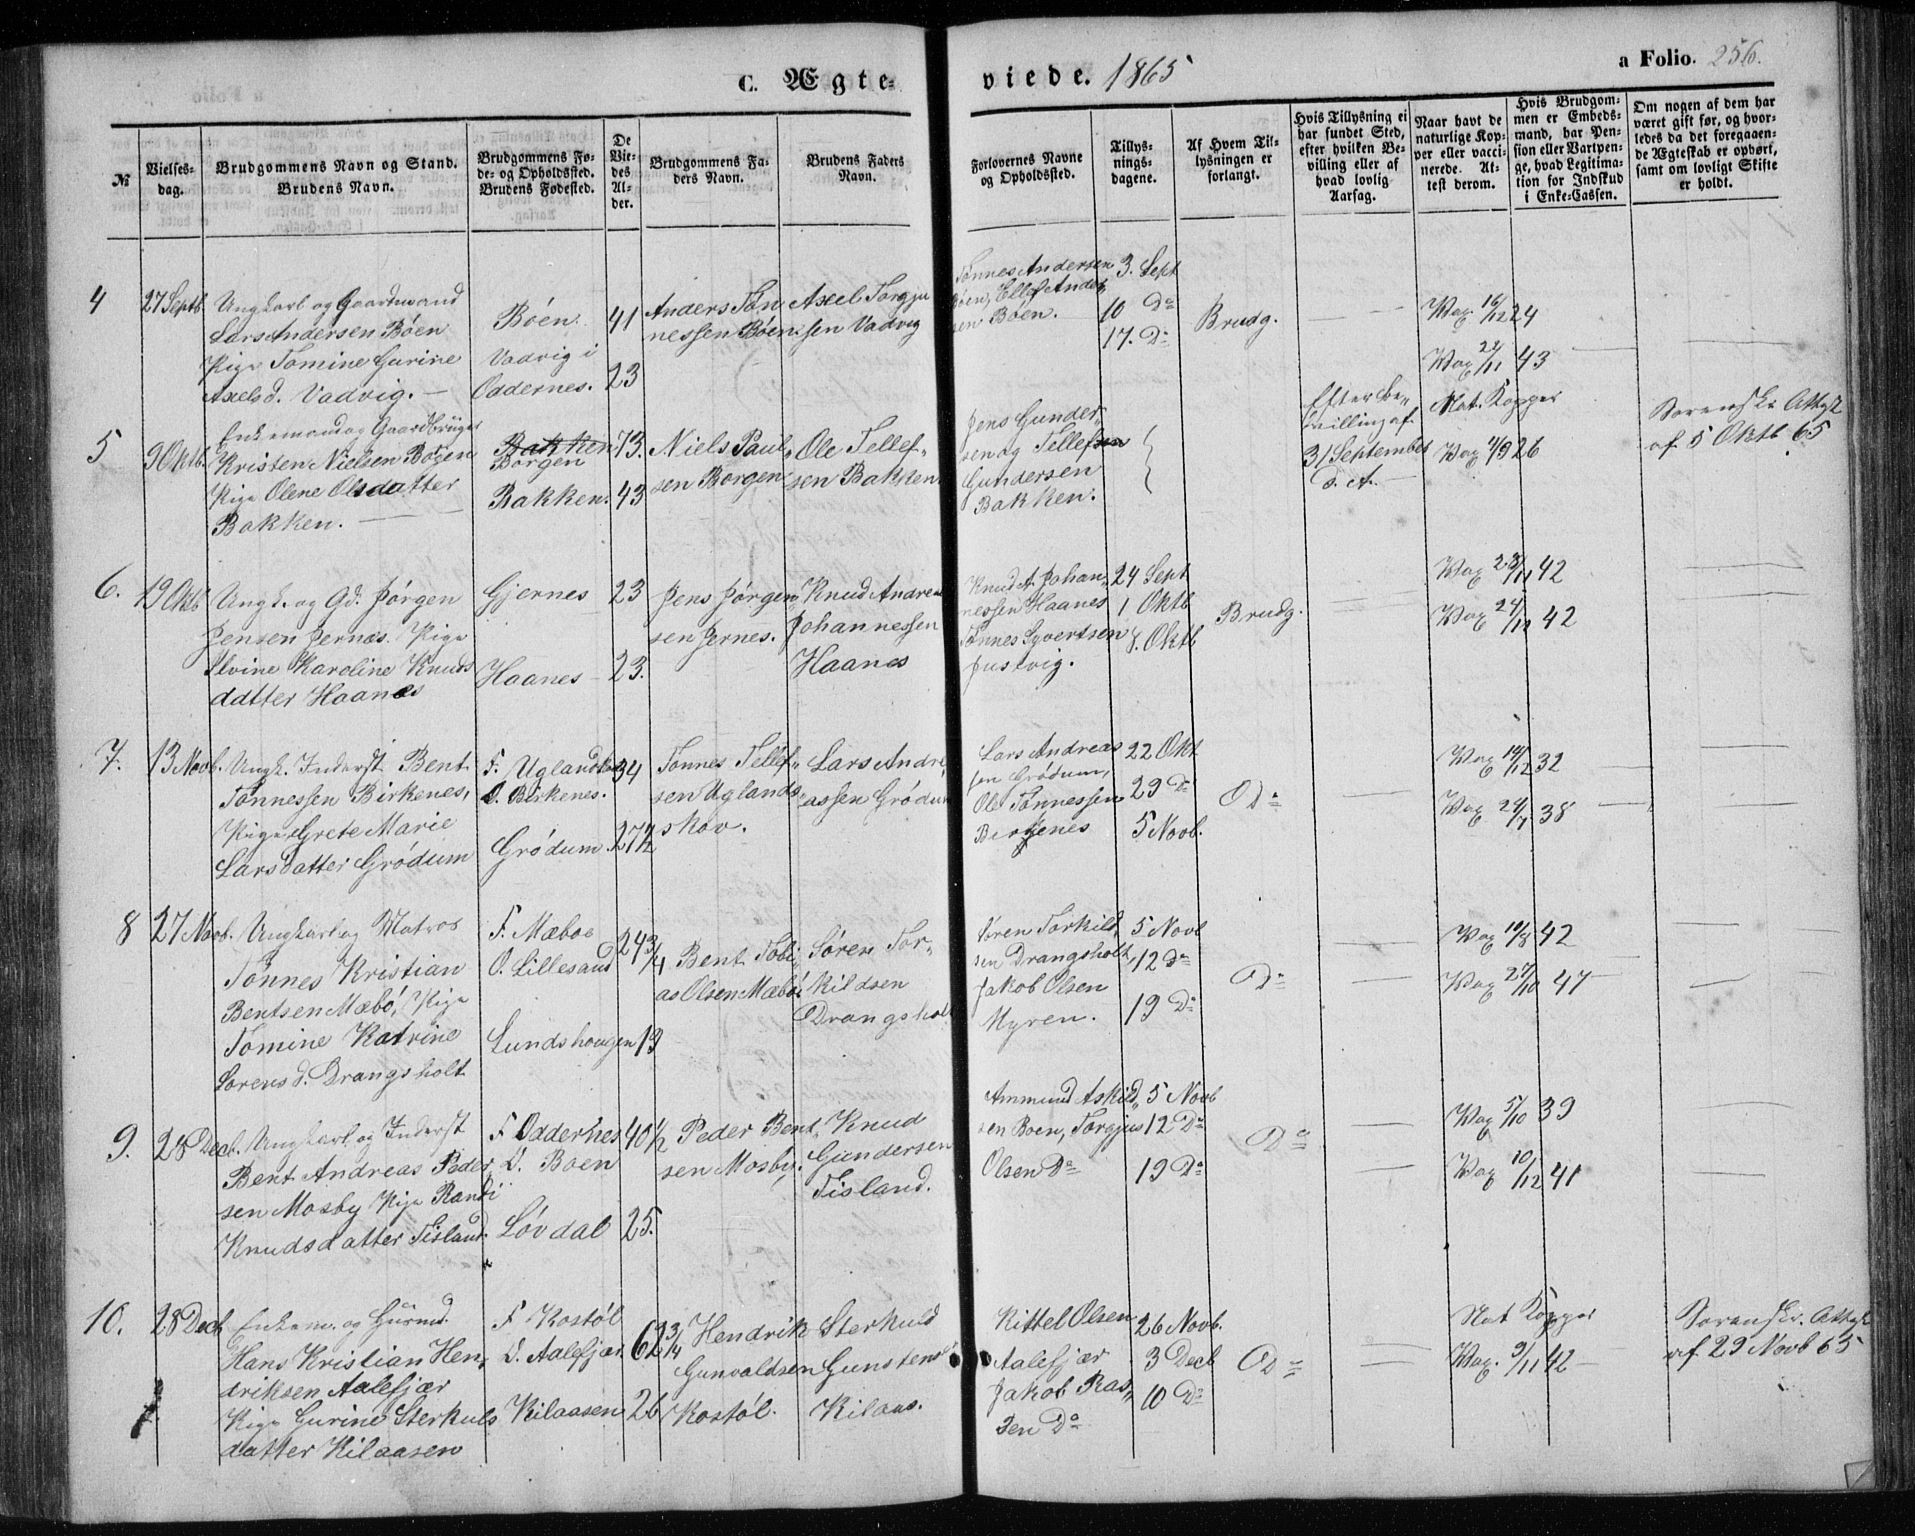 C. Ægte-
viede. 1865
a Folio. 256.
№
Vielses-
dag.
Brudgommens Navn og Stand.
Brudens Navn.
Brudgommens Fø-
de- og Opholdssted.
Brudens Fødested.
De
Vie-
des
Al-
der.
Brudgommens Fa-
ders Navn.
Brudens Faders
Navn.
Forlovernes Navne
og Opholdssted.
Tillys-
nings-
dagene.
Af Hvem Til-
lysningen er
forlangt.
Hvis Tillysning ei
har fundet Sted,
efter hvilken Be-
villing eller af
hvad lovlig
Aarsag.
Naar havt de
naturlige Kop-
per eller vacci-
nerede. At-
test derom.
Hvis Brudgom-
men er Embeds-
mand, har Pen-
sion eller Vartpen-
ge, hvad Legitima-
tion for Indskud
i Enke-Cassen.
Om nogen af dem har
været gift før, og hvor-
ledes da det foregaaen-
de Ægteskab er ophørt,
samt om lovligt Skifte
er holdt.
4
27 Septb.
Ungkarl og Gaardmand
Lars Andersen Bóen
Pige Tomine Gurine
Axelsd. Vadvig. —
Bóen
Vadvig i
Oddernes.
41
23
Anders Tón
nessen Bóen
Axel Torgju
ssen Vadvig
Tónnes Andersen
Bóen, Ellef Ander
sen Bóen.
3. Sept
10 Do
17. Do
Brudg.
Vax 16/12 24
Vax 22/11 43
5
9 Oktb.
Enkemand og Gaardbrüger
Kristen Nielsen Borgen
Pige Olene Olsdatter
Bakken. —
Bakken
Borgen
Bakken.
73.
43
Niels Paul„
sen Borgen
Ole Tellef„
sen Bakken
Jens Gunder„
sen og Tellefsen
Gundersen
Bakken.
Efter be„
villing af
31 September
d. A.
Nat. Kopper
Vax 4/9 26
Sorenskr. Attest
af 5 Oktb 65
6.
19 Oktb
Ungk. og Gd. Jórgen
Jensen Jernæs. Pige
Elvine Karoline Knuds
datter Haanes
Gjernes
Haanes
23
23.
Jens Jórgen„
sen Jernes.
Knud Andreas
Johannessen
Haanes
Knud A. Johan„
nessen Haanes
Tónnes Syvertsen
Justvig.
24 Sept
1 Oktb
8. Oktb
Brudg.
Vax 23/11 42
Vax 24/12 42
7.
13 Novb.
Ungk. Inderst Bent
Tónnessen Birkenes,
Pige Grete Marie
Larsdatter Gródum
F. Uglandsk
O. Birkenes.
Gródum
34
27½
Tónnes Tellef„
sen Uglands
skov.
Lars Andre„
assen Gródum
Lars Andreas
sen Gródum,
Ole Tónnessen
Birkenes
22 Okt
29 Do
5 Novb.
Do
Vax 14/12 32
Vax 24/7 38
8
27 Novb.
Ungkarl og Matros
Tónnes Kristian
Bentsen Mæbó, Pige
Tomine Katrine
Sorens d. Drangsholt
F. Mæboe
O. Lillesand
Lundshougen
24¾
19
Bent Tobi„
as Olsen Mæbó
Sóren Tor„
kildsen
Drangsholt
Sóren Torkild„
sen Drangsholt,
Jakob Olsen
Myren.
5 Novb
12 Do
19 Do
Do
Vax 19/8 42
Vax 27/10 47
9.
28 Decb.
Ungkarl og Inderst
Bent Andreas Peder
sen Mosby Pige Randi
Knudsdatter Tisland.
F Oddernes
O. Boen
Lóvdal
40½
25.
Peder Bent„
sen Mosby,
Knud
Gundersen
Tisland.
Ammund Askild„
sen Boen, Torgjus
Olsen Do
5 Novb
12 Do
19 Do
Do
Vax 5/10 39
Vax 10/12 41
10.
28 Decb
Enkem. og Gürmd.
Hans Kristian Hen„
driksen Aalefjær
Pige Gurine Sterkuls
datter Kilaasen
F Kostól
O. Aalefjær
Kilaasen
62¾
26
Hendrik
Gunvaldsen
Kostól.
Sterkuld
Gunstens
Kilaas.
Kittel Olsen
Aalefjær
Jakob Ras„
sen Do
26 Novb.
3 Decb
10 Do
Do
Nat Kopper
Vax. 9/11 42
Sorenskr. Attest
af 29 Novb 65